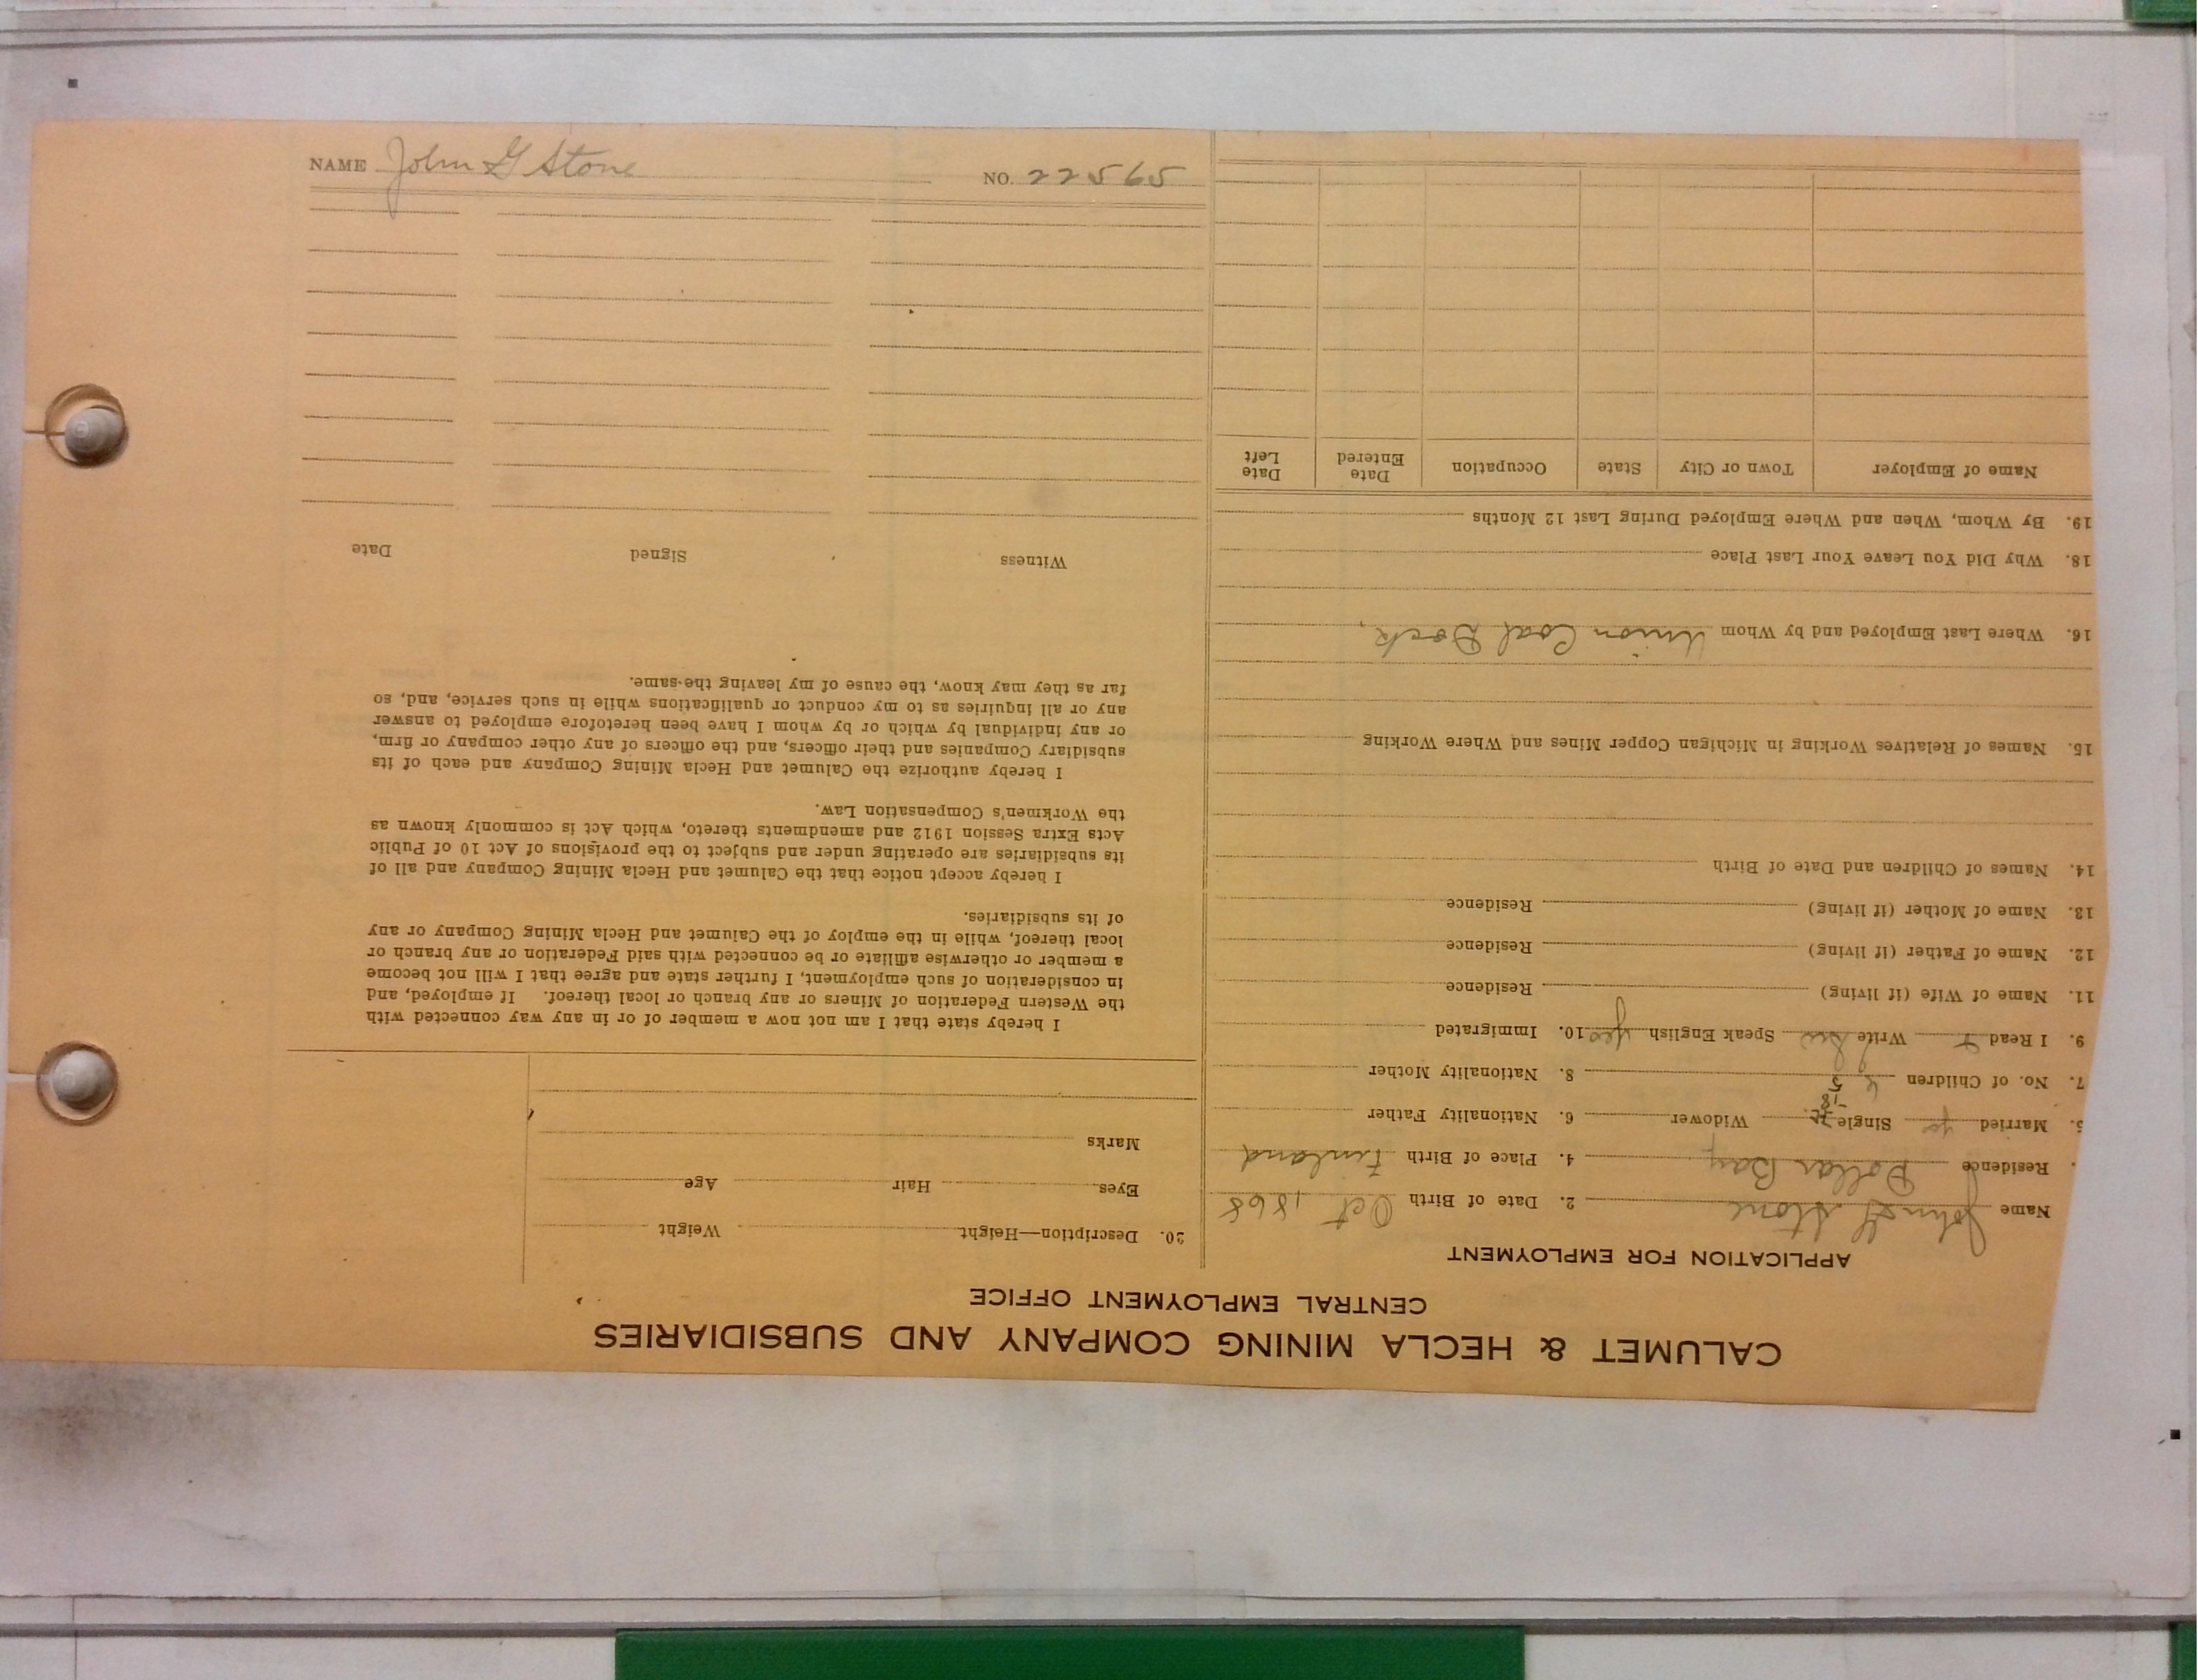 CALUMET & HECLA MINING COMPANY AND SUBSIDIARIES
CENTRAL EMPLOYMENT OFFICE
APPLICATION FOR EMPLOYMENT
Name John G Stone 2. Date of Birth Oct 1868
Residence Dollar Bay 4. Place of Birth Finland
5. Married yes Single Widower 6. Nationality Father
7. No. of Children 8. Nationality Mother
9. I Read Write Speak English yes 10. Immigrated
11. Name of Wife (if living) Residence
12. Name of Father (if living) Residence
13. Name of Mother (if living) Residence
14. Names of Children and Date of Birth
15. Names of Relatives Working in Michigan Copper Mines and Where Working
16. Where Last Employed and by Whom Union Coal Dock
18. Why Did You Leave Your Last Place
19. By Whom, When and Where Employed During Last 12 Months
Name of Employer Town or City State Occupation Date Entered Date Left
20. Description—Height Weight
Eyes Hair Age
Marks
I hereby state that I am not now a member of or in any way connected with
the Western Federation of Miners or any branch or local thereof. If employed, and
in consideration of such employment, I further state and agree that I will not become
a member or otherwise affiliate or be connected with said Federation or any branch or
local thereof, while in the employ of the Calumet and Hecla Mining Company or any
of its subsidiaries.
I hereby accept notice that the Calumet and Hecla Mining Company and all of
its subsidiaries are operating under and subject to the provisions of Act 10 of Public
Acts Extra Session 1912 and amendments thereto, which Act is commonly known as
the Workmen's Compensation Law.
I hereby authorize the Calumet and Hecla Mining Company and each of its
subsidiary Companies and their officers, and the officers of any other company or firm,
or any individual by which or by whom I have been heretofore employed to answer
any or all inquiries as to my conduct or qualifications while in such service, and, so
far as they may know, the cause of my leaving the same.
Witness Signed Date
NAME John G Stone NO. 22565